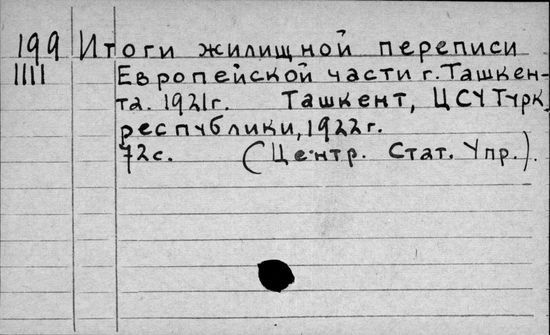 199 Итоги жилищной переписи
1111 Европейской части г. Ташкен-
та. 1921г. Ташкент, ЦСУ Турк.
республики, 1922г.
72с. (Центр. Стат. Упр.).